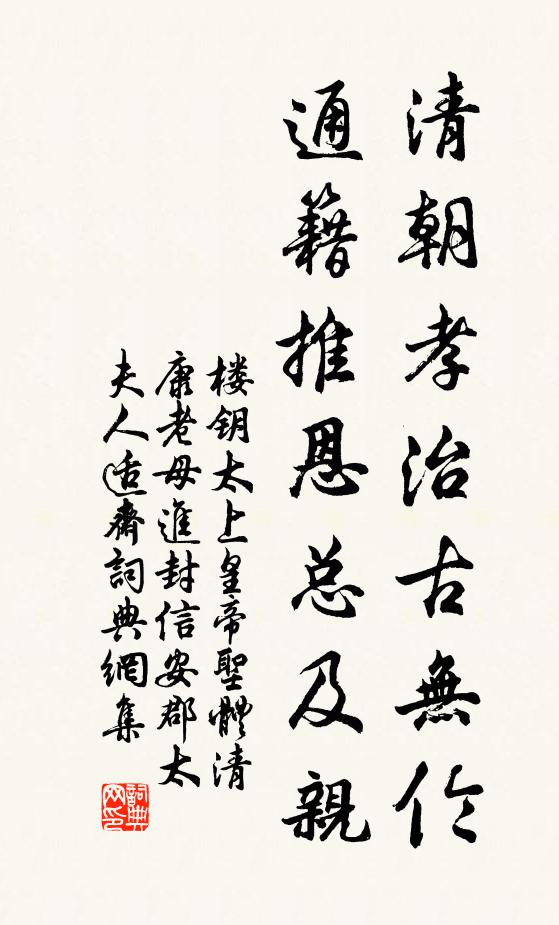 清朝孝治古無伦
通籍推恩总及親
楼钥太上皇帝聖體清
康老母進封信安郡太
夫人适齋詞典網集
詞典
网印